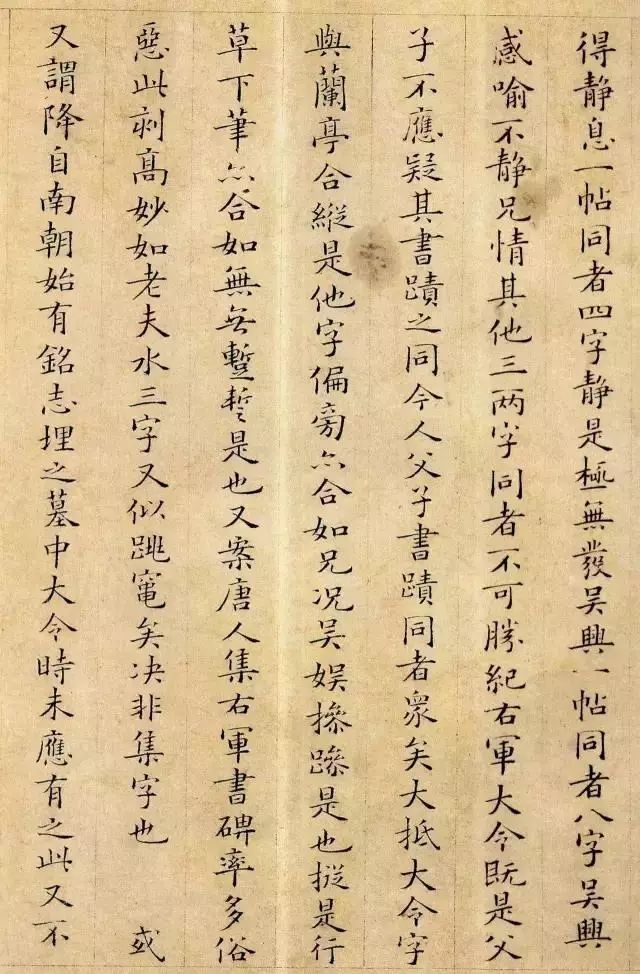 得静息一帖同者四字静是極無發吴興一帖同者八字吴興
感喻不静兄情其他三两字同者不可勝紀右軍大令既是父
子不應疑其書蹟之同今人父子書蹟同者衆矣大抵大令字
與蘭亭合縱是他字偏旁亦合如兄况吴娱摻蹂是也摐是行
草下筆亦合如無無蹔誓是也又案唐人集右軍書碑率多俗
惡此刻高妙如老夫水三字又似跳竄矣决非集字也 或
又謂降自南朝始有銘志埋之墓中大令時未應有之此又不